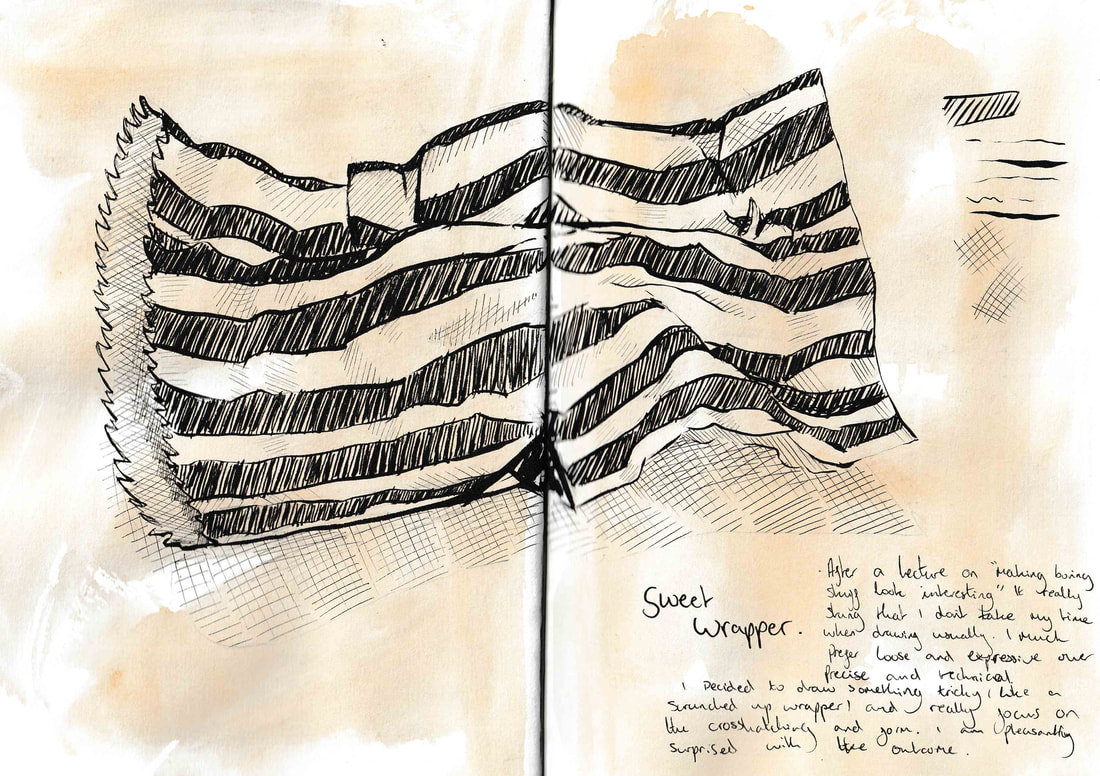 Sweet
Wrapper.
· After a lecture on "Making boring
stuff look interesting" It really
stung that I don't take my time
when drawing usually. I much
prefer loose and expressive over
precise and technical.
I Decided to draw something tricky (like a
scrunched up wrapper) and really focus on
the crosshatching and form. I am pleasantly
surprised with the outcome.